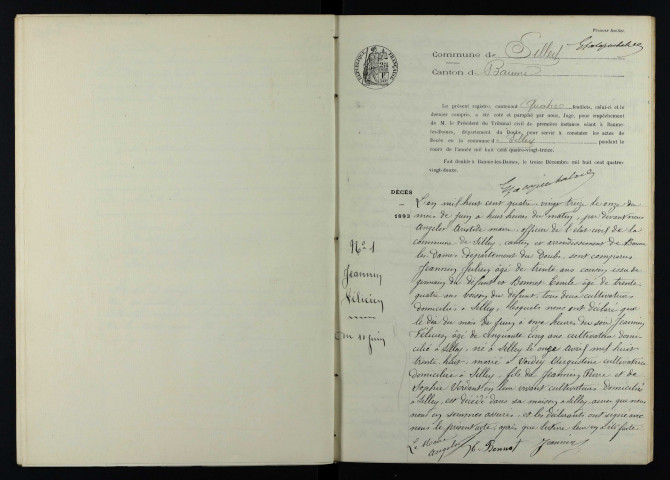 Premier feuillet.
Commune de Silley
Canton de Baume
RÉPUBLIQUE FRANÇAISE
Le présent registre, contenant quatre feuillets, celui-ci et le
dernier compris, a été coté et paraphé par nous, Juge, pour empêchement
de M. le Président du Tribunal civil de première instance séant à Baume-
les-Dames, département du Doubs, pour servir à constater les actes de
Décès de la commune de Silley pendant le
cours de l'année mil huit cent quatre-vingt-treize.
Fait double à Baume-les-Dames, le treize Décembre mil huit cent quatre-
vingt-douze.
DÉCÈS
1893
No 1
Jeannin
Félicien
du 11 juin
L'an mil huit cent quatre-vingt treize le onze du
mois de juin à huit heures du matin, par devant nous
Angelot Aristide maire, officier de l'état civil de la
commune de Silley, canton et arrondissement de Baume
les Dames département du Doubs, sont comparus
Jeannin Julien âgé de trente ans cousin issu de
germain du défunt et Bonnet Emile âgé de trente
quatre ans voisin du défunt, tous deux cultivateurs
domiciliés à Silley, lesquels nous ont déclaré que
le dix du mois de juin, à onze heures du soir Jeannin
Félicien, âgé de cinquante cinq ans cultivateur domi-
cilié à Silley, né à Silley le onze avril mil huit
trente huit, marié à cultivatrice
domiciliée à Silley, fils de Jeannin Pierre et de
Sophie en leur vivant cultivateurs domiciliés
à Silley, est décédé dans sa maison à Silley, ainsi que nous
nous en sommes assurés, et les déclarants ont signé avec
nous le présent acte, après que lecture leur en a été faite
Le Maire
Angelot Bonnet Jeannin